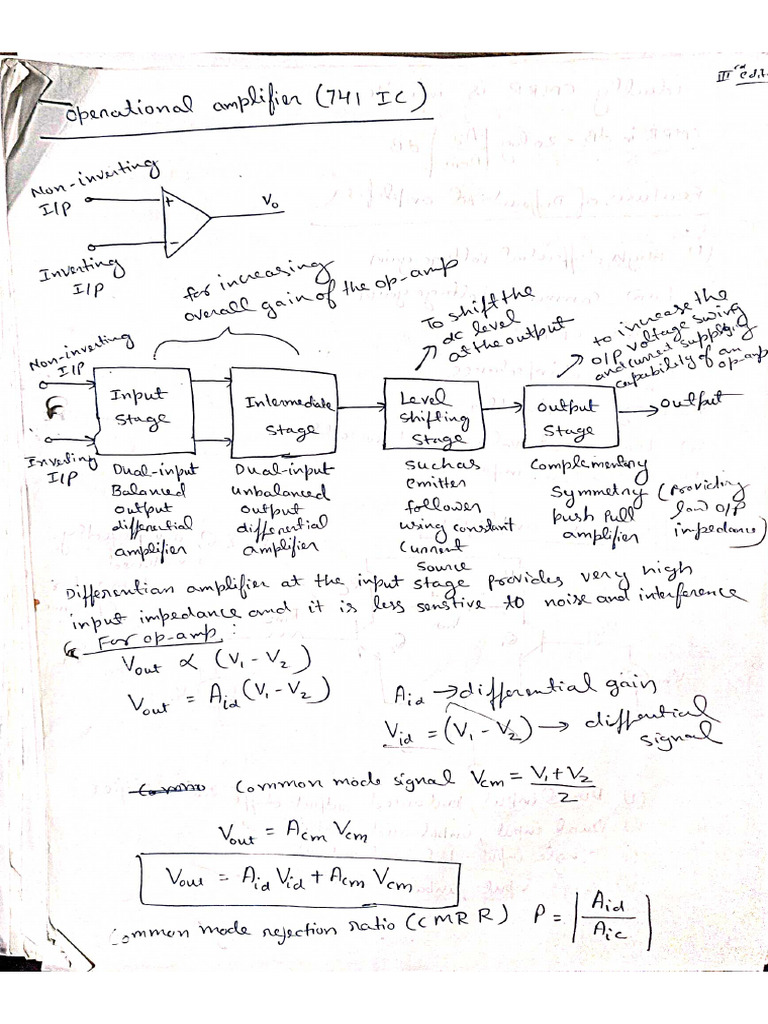 IIIrd edit
Operational amplifier (741 IC)
Non-inverting
I/P
+
Vo
-
Inverting
I/P
for increasing
overall gain of the op-amp
To shift the
dc level
at the output
to increase the
O/P voltage swing
and current supplying
capability of an
op-amp
Non-inverting
I/P
Inverting
I/P
Input
Stage
Intermediate
Stage
Level
Shifting
Stage
Output
Stage
Output
Dual-input
Balanced
output
differential
amplifier
Dual-input
unbalanced
output
differential
amplifier
such as
emitter
follower
using constant
current
source
Complementary
Symmetry
push pull
amplifier
(Providing
low O/P
impedance)
Differentian amplifier at the input stage provides very high
input impedance and it is less senstive to noise and interference
For op-amp :
Vout ∝ (V1 - V2)
Vout = Aid (V1 - V2)
Aid → differential gain
Vid = (V1 - V2) → diffential
signal
Common mode signal Vcm = V1 + V2 / 2
Vout = Acm Vcm
Vout = Aid Vid + Acm Vcm
Common mode rejection ratio (CMRR) P = | Aid / Aic |